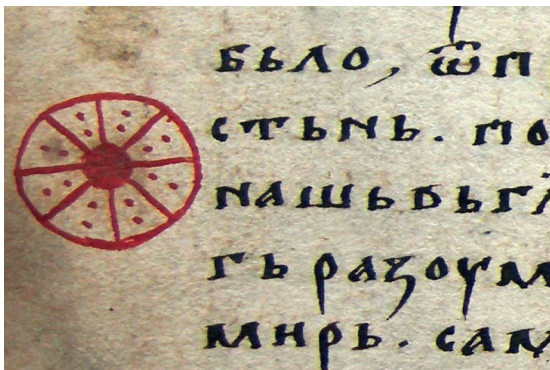 бьло, ѿп
стьнь. по
нашь бьг
гь разоум
мирь. сам